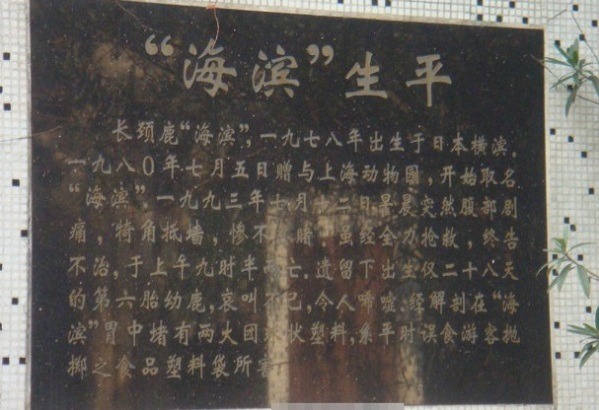 “海滨”生平
长颈鹿“海滨”，一九七八年出生于日本横滨，
一九八〇年七月五日赠与上海动物园，开始取名
“海滨”。一九九三年十月十二日晨突然腹部剧
痛，犄角抵墙，惨不睹，虽经全力抢救，终告
不治，于上午九时半死亡，遗留下出生仅二十八天
的第六胎幼鹿，哀叫不已，令人唏嘘。经解剖在“海
滨”胃中堵有两大团状塑料，系平时误食游客抛
掷之食品塑料袋所